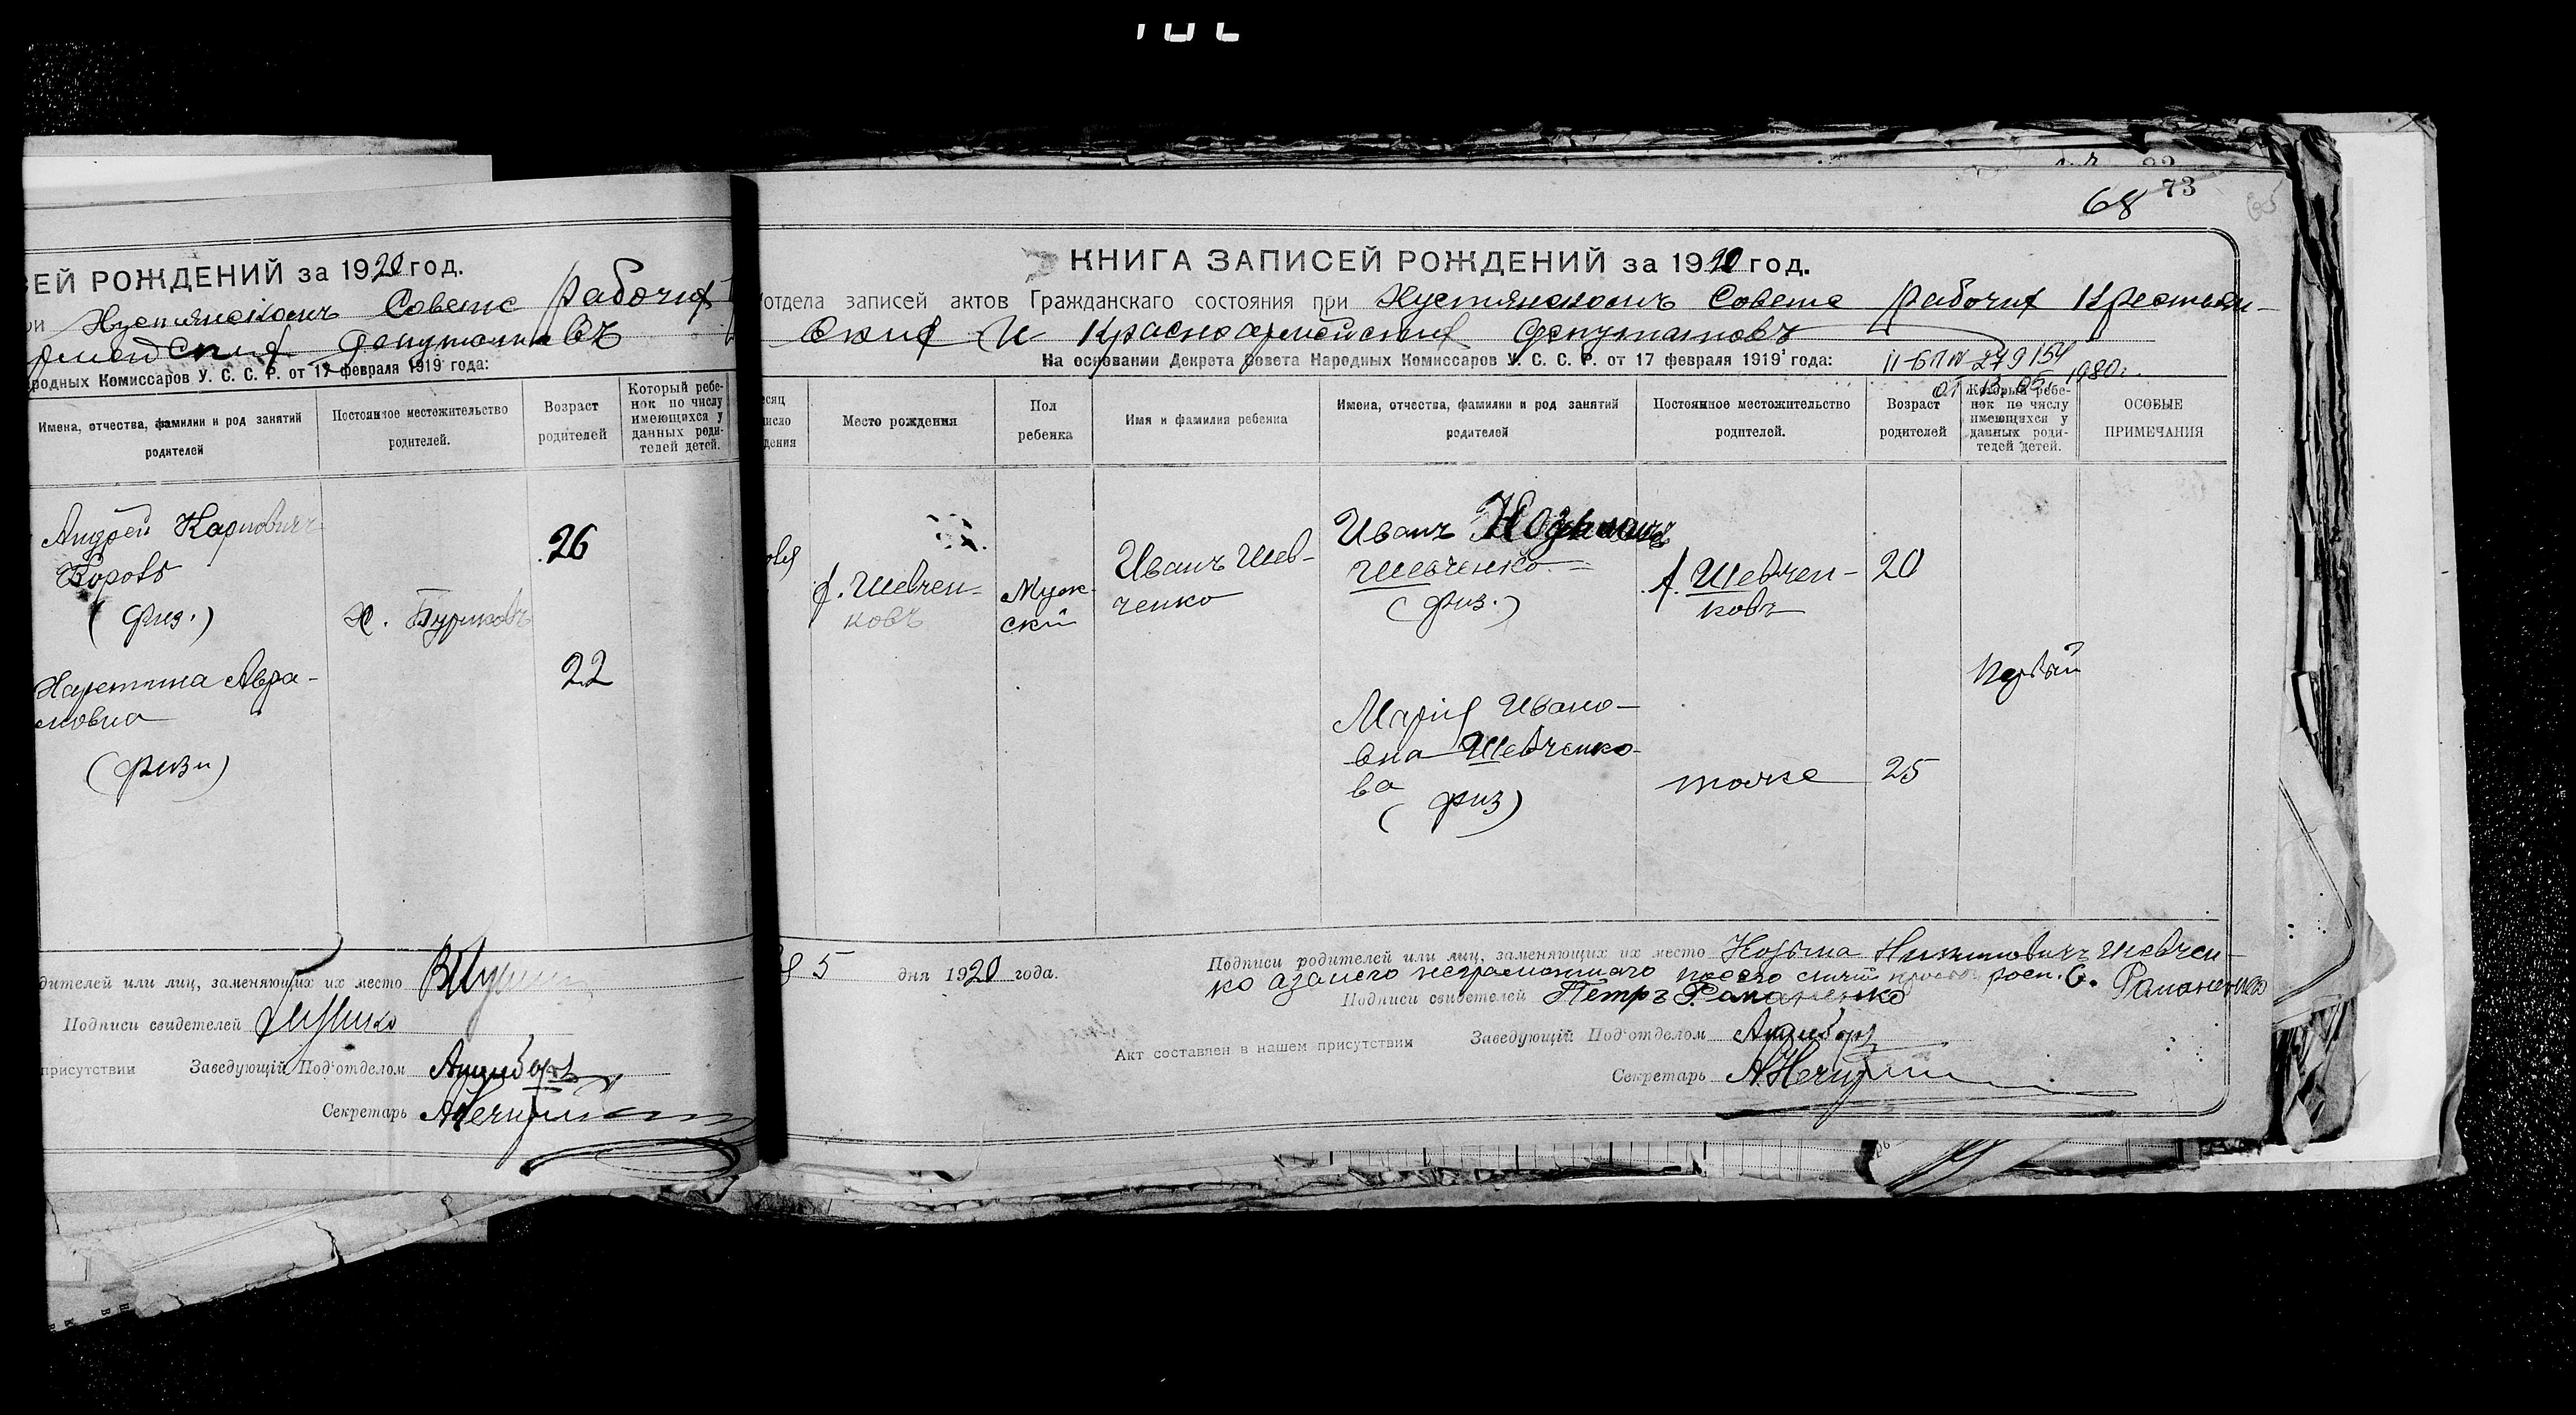 СЕЙ РОЖДЕНИЙ за 1920 год.
Советѣ Рабочих
депутатовъ
родных Комиссаров У. С. С. Р. от 17 февраля 1919 года:
Имена, отчества, фамилии и род занятий родителей
Постоянное местожительство родителей.
Возраст родителей
Который ребе-
нок по числу
имеющихся у
данных роди-
телей детей.
Андрей Карпович
26
(физ.)
Х. Буряковъ
22
мовна
дителей или лиц, заменяющих их место
Подписи свидетелей
присутствии Заведующій Под'отделом
Секретарь
68 73
65
КНИГА ЗАПИСЕЙ РОЖДЕНИЙ за 1920 год.
отдела записей актов Гражданскаго состояния при Хустянскомъ Совете Рабочих Крестьян-
ских и Красноармейских депутатовъ
На основании Декрета Совета Народных Комиссаров У. С. С. Р. от 17 февраля 1919 года:
279154
от 13.05. 1980г.
Место рождения
Пол ребенка
Имя и фамилия ребенка
Имена, отчества, фамилии и род занятий родителей
Постоянное местожительство родителей.
Возраст родителей
Который ребе-
нок по числу
имеющихся у
данных роди-
телей детей.
ОСОБЫЕ ПРИМЕЧАНИЯ
х. Шевчен-
ковъ
Муж-
скій
Иванъ Шев-
ченко
Иванъ Козьмичъ
Шевченко
(физ.)
х. Шевчен-
ковъ
20
Марія Ивано-
вна Шевченко-
ва
(физ)
тоже
25
Первый
5 дня 1920 года.
Подписи родителей или лиц, заменяющих их место Козьма Никитовичъ Шевчен-
ко а за него неграмотнаго росп. С. Рамоненко
Подписи свидетелей Петръ Рамоненко
Акт составлен в нашем присутствии Заведующій Под'отделом
Секретарь